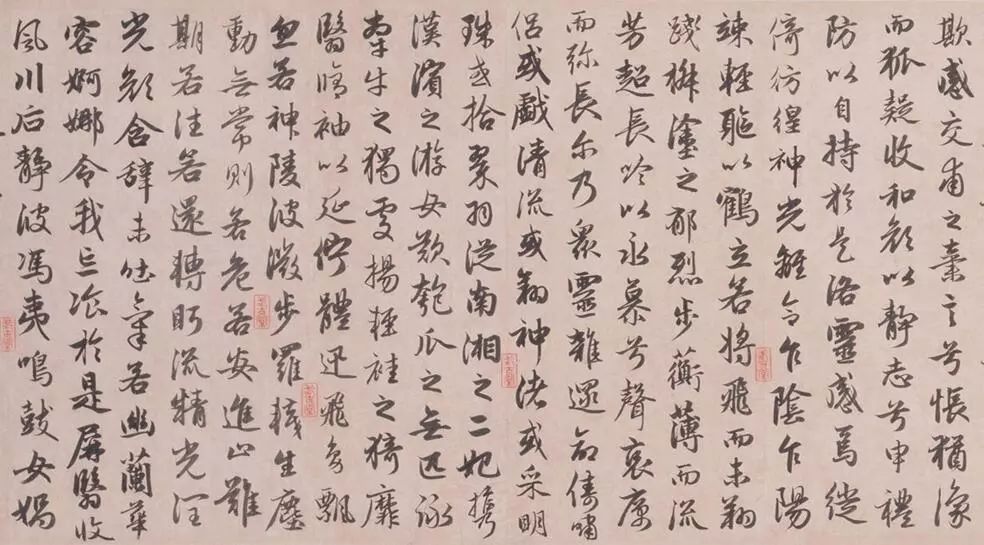 欺感交甫之棄言兮悵猶豫
而狐疑收和顏以靜志兮申禮
防以自持於是洛靈感焉徙
倚彷徨神光離合乍陰乍陽
竦輕軀以鶴立若將飛而未翔
踐椒塗之郁烈步蘅薄而流
芳超長吟以永慕兮聲哀厲
而彌長爾乃眾靈雜遝命儔嘯
侶或戲清流或翔神渚或采明
珠或拾翠羽從南湘之二妃攜
漢濱之游女歎匏瓜之無匹詠
牽牛之獨處揚輕袿之猗靡
翳脩袖以延佇體迅飛鳧飄
忽若神陵波微步羅襪生塵
動無常則若危若安進止難
期若往若還轉眄流精光潤
光顏含辭未吐氣若幽蘭華
容婀娜令我忘飡於是屏翳收
風川后靜波馮夷鳴鼓女媧